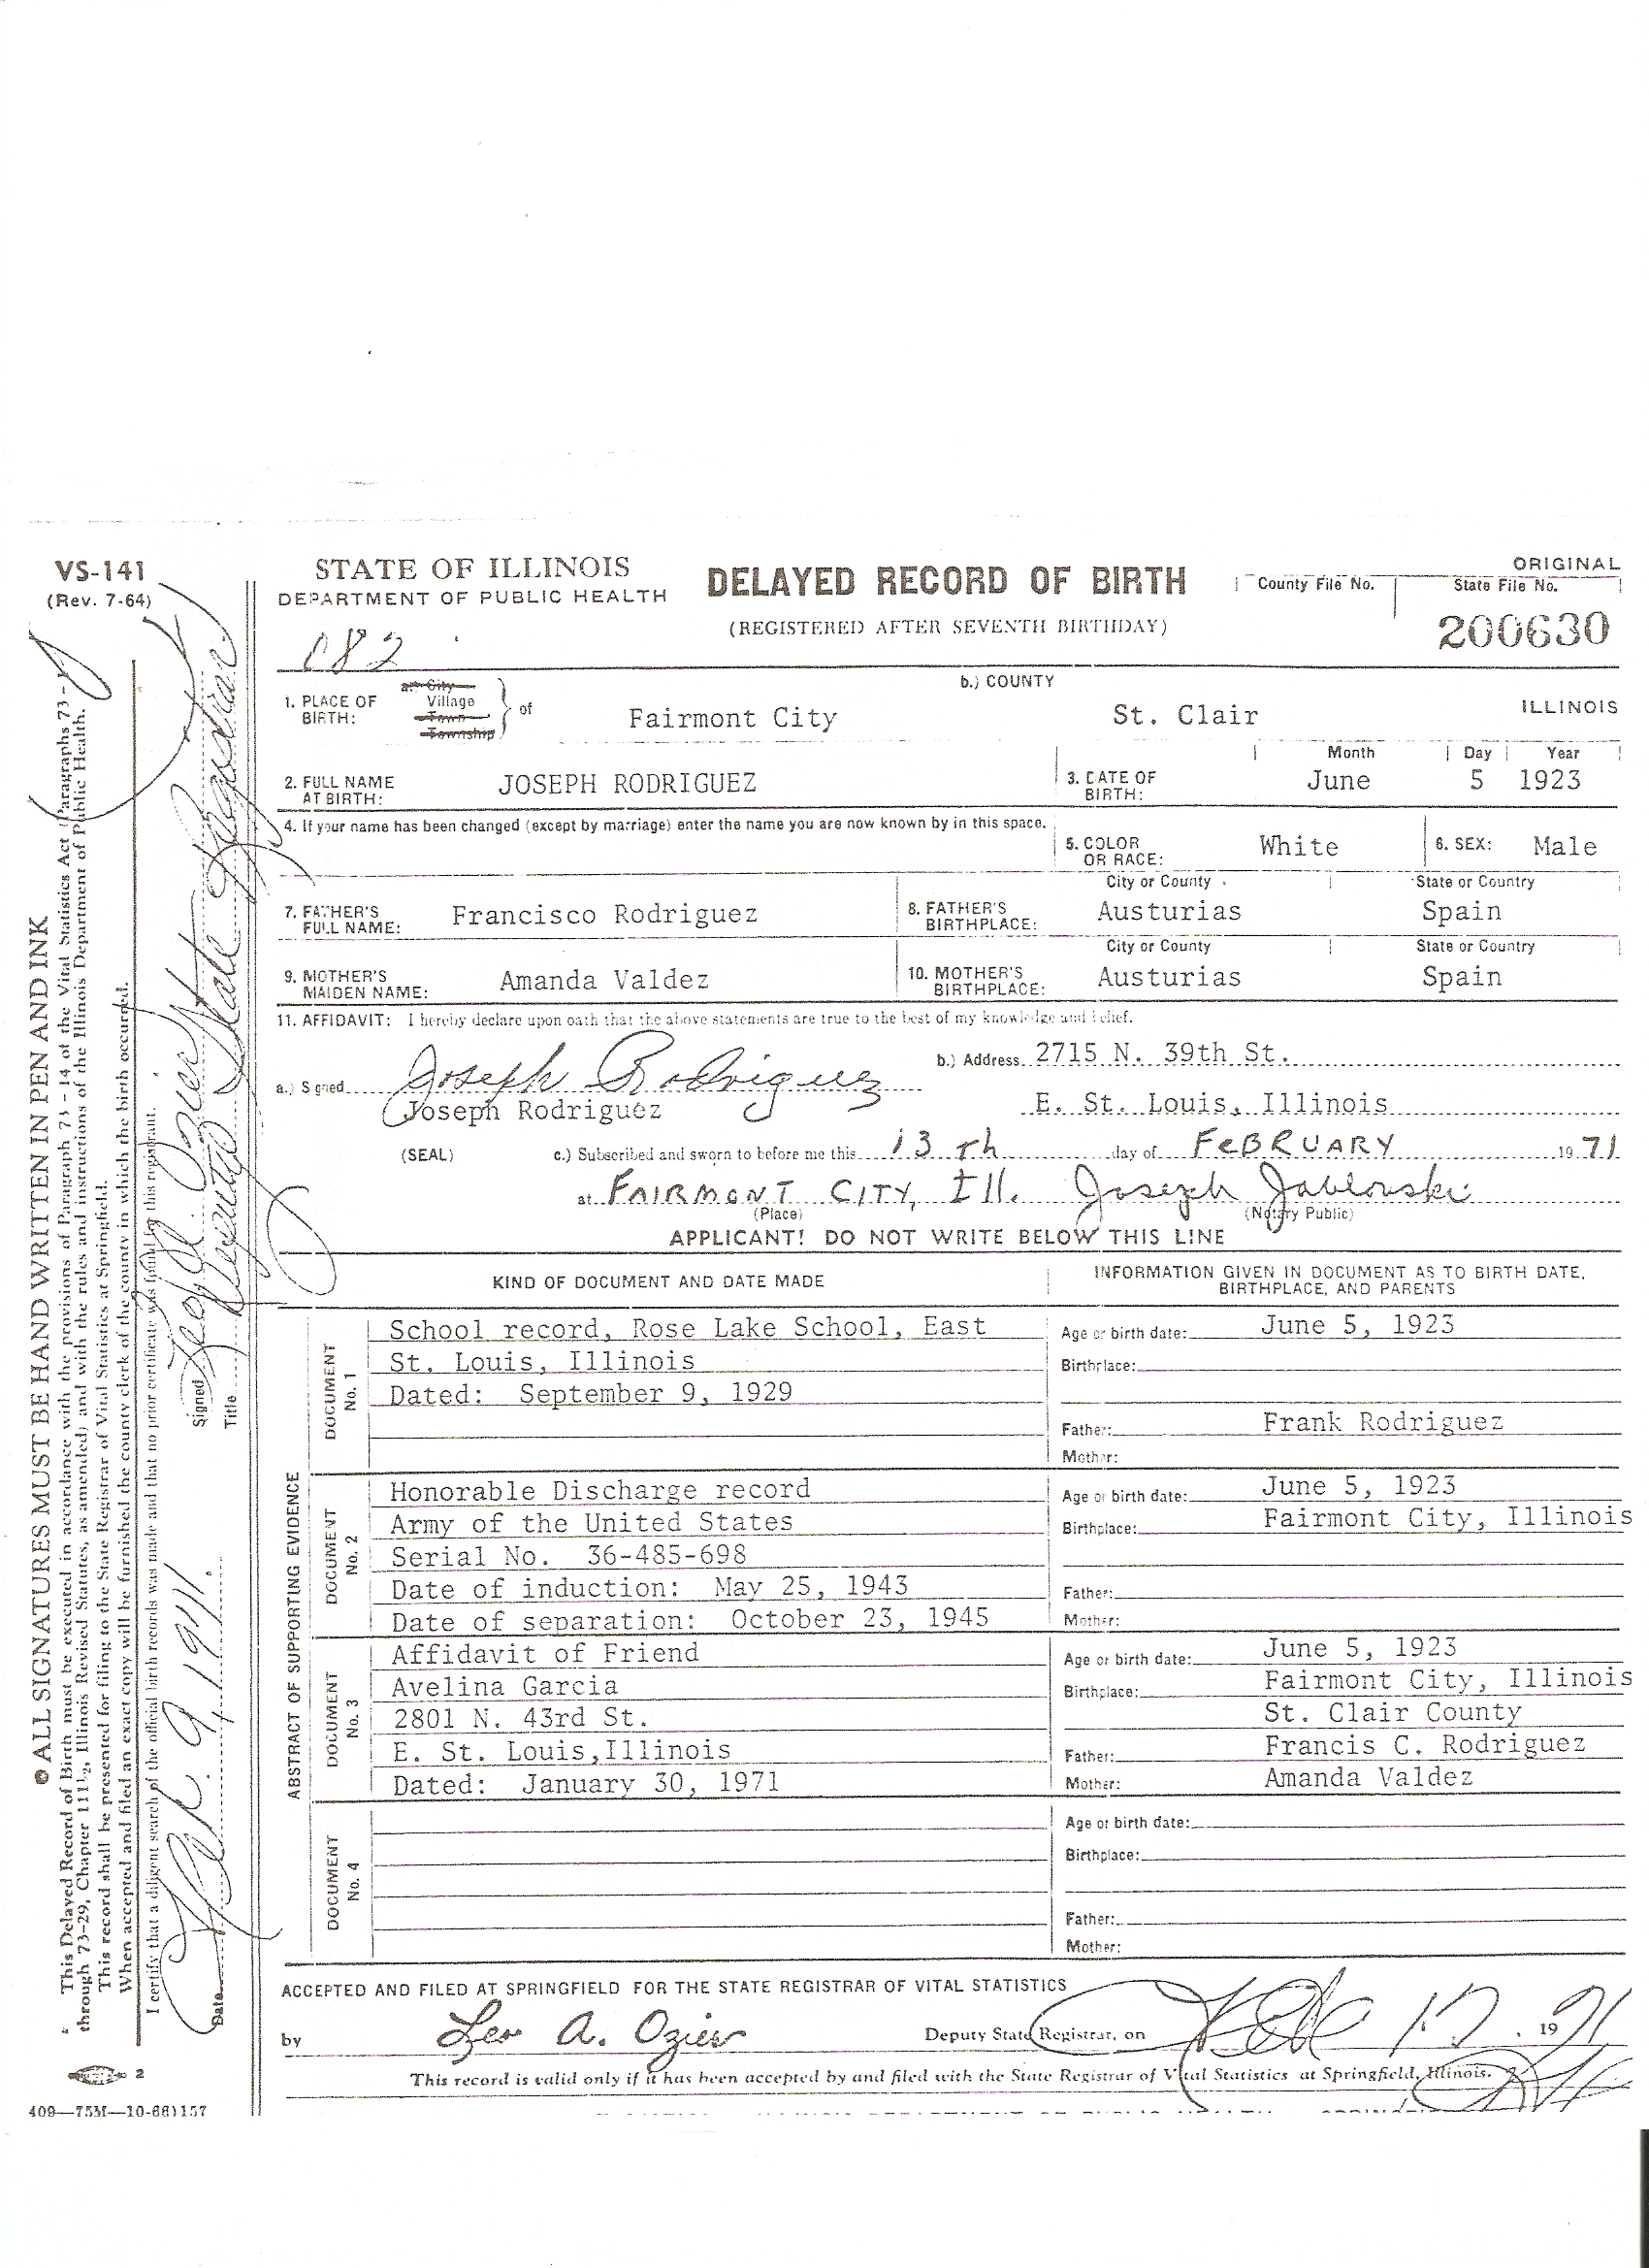 VS-141
(Rev. 7-64)
STATE OF ILLINOIS
DEPARTMENT OF PUBLIC HEALTH
082
DELAYED RECORD OF BIRTH
(REGISTERED AFTER SEVENTH BIRTHDAY)
ORIGINAL
County File No.
State File No.
200630
1. PLACE OF BIRTH:
a. City
Village
Town
Township
of
Fairmont City
b.) COUNTY
St. Clair
ILLINOIS
2. FULL NAME AT BIRTH:
JOSEPH RODRIGUEZ
3. DATE OF BIRTH:
Month Day Year
June 5 1923
4. If your name has been changed (except by marriage) enter the name you are now known by in this space.
5. COLOR OR RACE:
White
6. SEX: Male
7. FATHER'S FULL NAME:
Francisco Rodriguez
8. FATHER'S BIRTHPLACE:
City or County State or Country
Austurias Spain
9. MOTHER'S MAIDEN NAME:
Amanda Valdez
10. MOTHER'S BIRTHPLACE:
City or County State or Country
Austurias Spain
11. AFFIDAVIT: I hereby declare upon oath that the above statements are true to the best of my knowledge and belief.
a.) Signed Joseph Rodriguez
Joseph Rodriguez
b.) Address 2715 N. 39th St.
E. St. Louis, Illinois
(SEAL) c.) Subscribed and sworn to before me this 13 Th day of FeBRUARY 1971
at FAIRMONT CITY, Ill. Joseph Jablonski
(Place) (Notary Public)
APPLICANT! DO NOT WRITE BELOW THIS LINE
KIND OF DOCUMENT AND DATE MADE
INFORMATION GIVEN IN DOCUMENT AS TO BIRTH DATE, BIRTHPLACE, AND PARENTS
ABSTRACT OF SUPPORTING EVIDENCE
DOCUMENT No. 1
School record, Rose Lake School, East
St. Louis, Illinois
Dated: September 9, 1929
Age or birth date: June 5, 1923
Birthplace:
Father: Frank Rodriguez
Mother:
DOCUMENT No. 2
Honorable Discharge record
Army of the United States
Serial No. 36-485-698
Date of induction: May 25, 1943
Date of separation: October 23, 1945
Age or birth date: June 5, 1923
Birthplace: Fairmont City, Illinois
Father:
Mother:
DOCUMENT No. 3
Affidavit of Friend
Avelina Garcia
2801 N. 43rd St.
E. St. Louis,Illinois
Dated: January 30, 1971
Age or birth date: June 5, 1923
Birthplace: Fairmont City, Illinois
St. Clair County
Father: Francis C. Rodriguez
Mother: Amanda Valdez
DOCUMENT No. 4
Age or birth date:
Birthplace:
Father:
Mother:
ACCEPTED AND FILED AT SPRINGFIELD FOR THE STATE REGISTRAR OF VITAL STATISTICS
by Leo A. Ozier Deputy State Registrar, on Feb 17, 1971
This record is valid only if it has been accepted by and filed with the State Registrar of Vital Statistics at Springfield, Illinois.
ALL SIGNATURES MUST BE HAND WRITTEN IN PEN AND INK
This Delayed Record of Birth must be executed in accordance with the provisions of Paragraph 73 - 14 of the Vital Statistics Act (Paragraphs 73 - 1
through 73-29, Chapter 111½, Illinois Revised Statutes, as amended) and with the rules and instructions of the Illinois Department of Public Health.
This record shall be presented for filing to the State Registrar of Vital Statistics at Springfield.
When accepted and filed an exact copy will be furnished the county clerk of the county in which the birth occurred.
I certify that a diligent search of the official birth records was made and that no prior certificate was found for this registrant.
Date Feb. 9, 1971. Signed Leo A. Ozier
Title Deputy State Registrar
2
409—75M—10-66)157